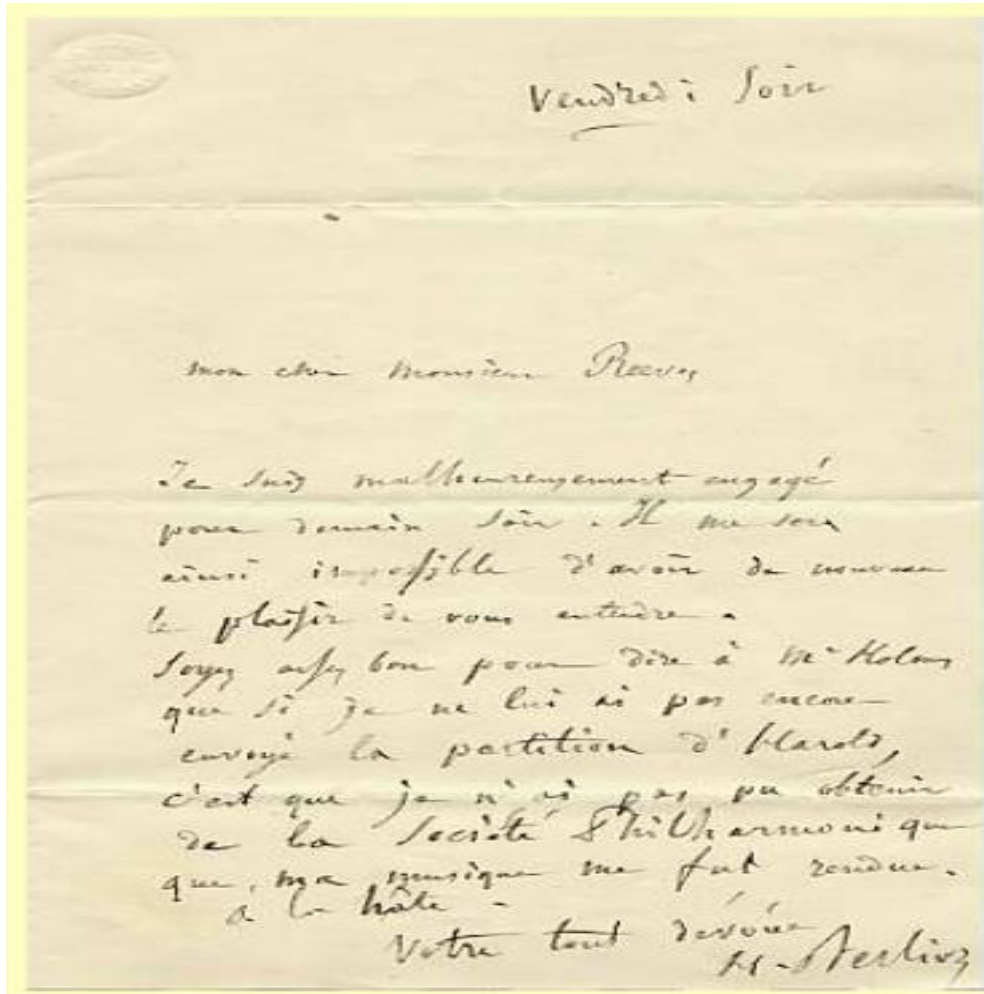 Vendredi Soir
mon cher Monsieur Reeves
Je suis malheureusement engagé
pour demain soir. Il me sera
ainsi impossible d'avoir de nouveau
le plaisir de vous entendre.
Soyez assez bon pour dire à Mr
que si je ne lui ai pas encore
envoyé la partition d'Harold,
c'est que je n'ai pas pu obtenir
de la Société Philharmonique
que ma musique me fut rendue.
à la hâte
Votre tout dévoué
H. Berlioz